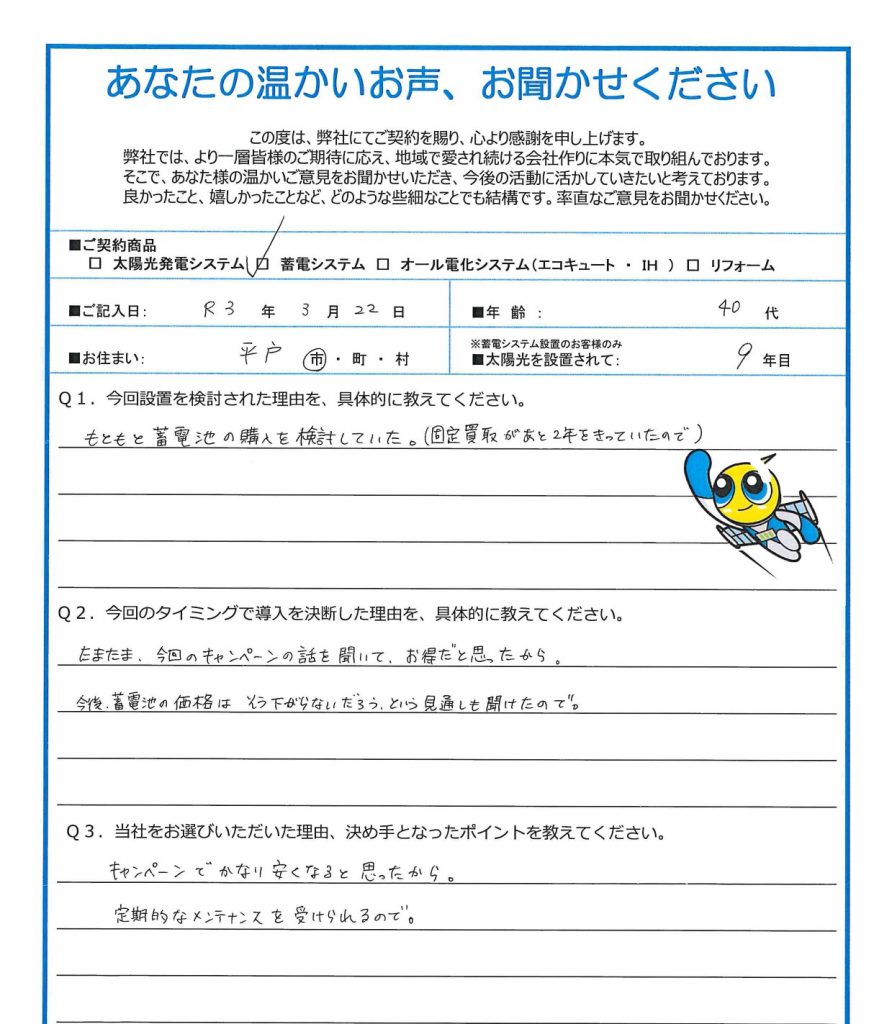 あなたの温かいお声、お聞かせください
この度は、弊社にてご契約を賜り、心より感謝を申し上げます。
弊社では、より一層皆様のご期待に応え、地域で愛され続ける会社作りに本気で取り組んでおります。
そこで、あなた様の温かいご意見をお聞かせいただき、今後の活動に活かしていきたいと考えております。
良かったこと、嬉しかったことなど、どのような些細なことでも結構です。率直なご意見をお聞かせください。
■ご契約商品
□ 太陽光発電システム ☑ 蓄電システム □ オール電化システム(エコキュート ・ IH ) □ リフォーム
■ご記入日: R3 年 3 月 22 日 ■年 齢 : 40 代
※蓄電システム設置のお客様のみ
■お住まい: 平戸 市・町・村 ■太陽光を設置されて: 9 年目
Q1. 今回設置を検討された理由を、具体的に教えてください。
もともと蓄電池の購入を検討していた。(固定買取があと2年をきっていたので)
Q2. 今回のタイミングで導入を決断した理由を、具体的に教えてください。
たまたま、今回のキャンペーンの話を聞いて、お得だと思ったから。
今後、蓄電池の価格は そう下がらないだろう、という見通しも聞けたので。
Q3. 当社をお選びいただいた理由、決め手となったポイントを教えてください。
キャンペーンでかなり安くなると思ったから。
定期的なメンテナンスを受けられるので。